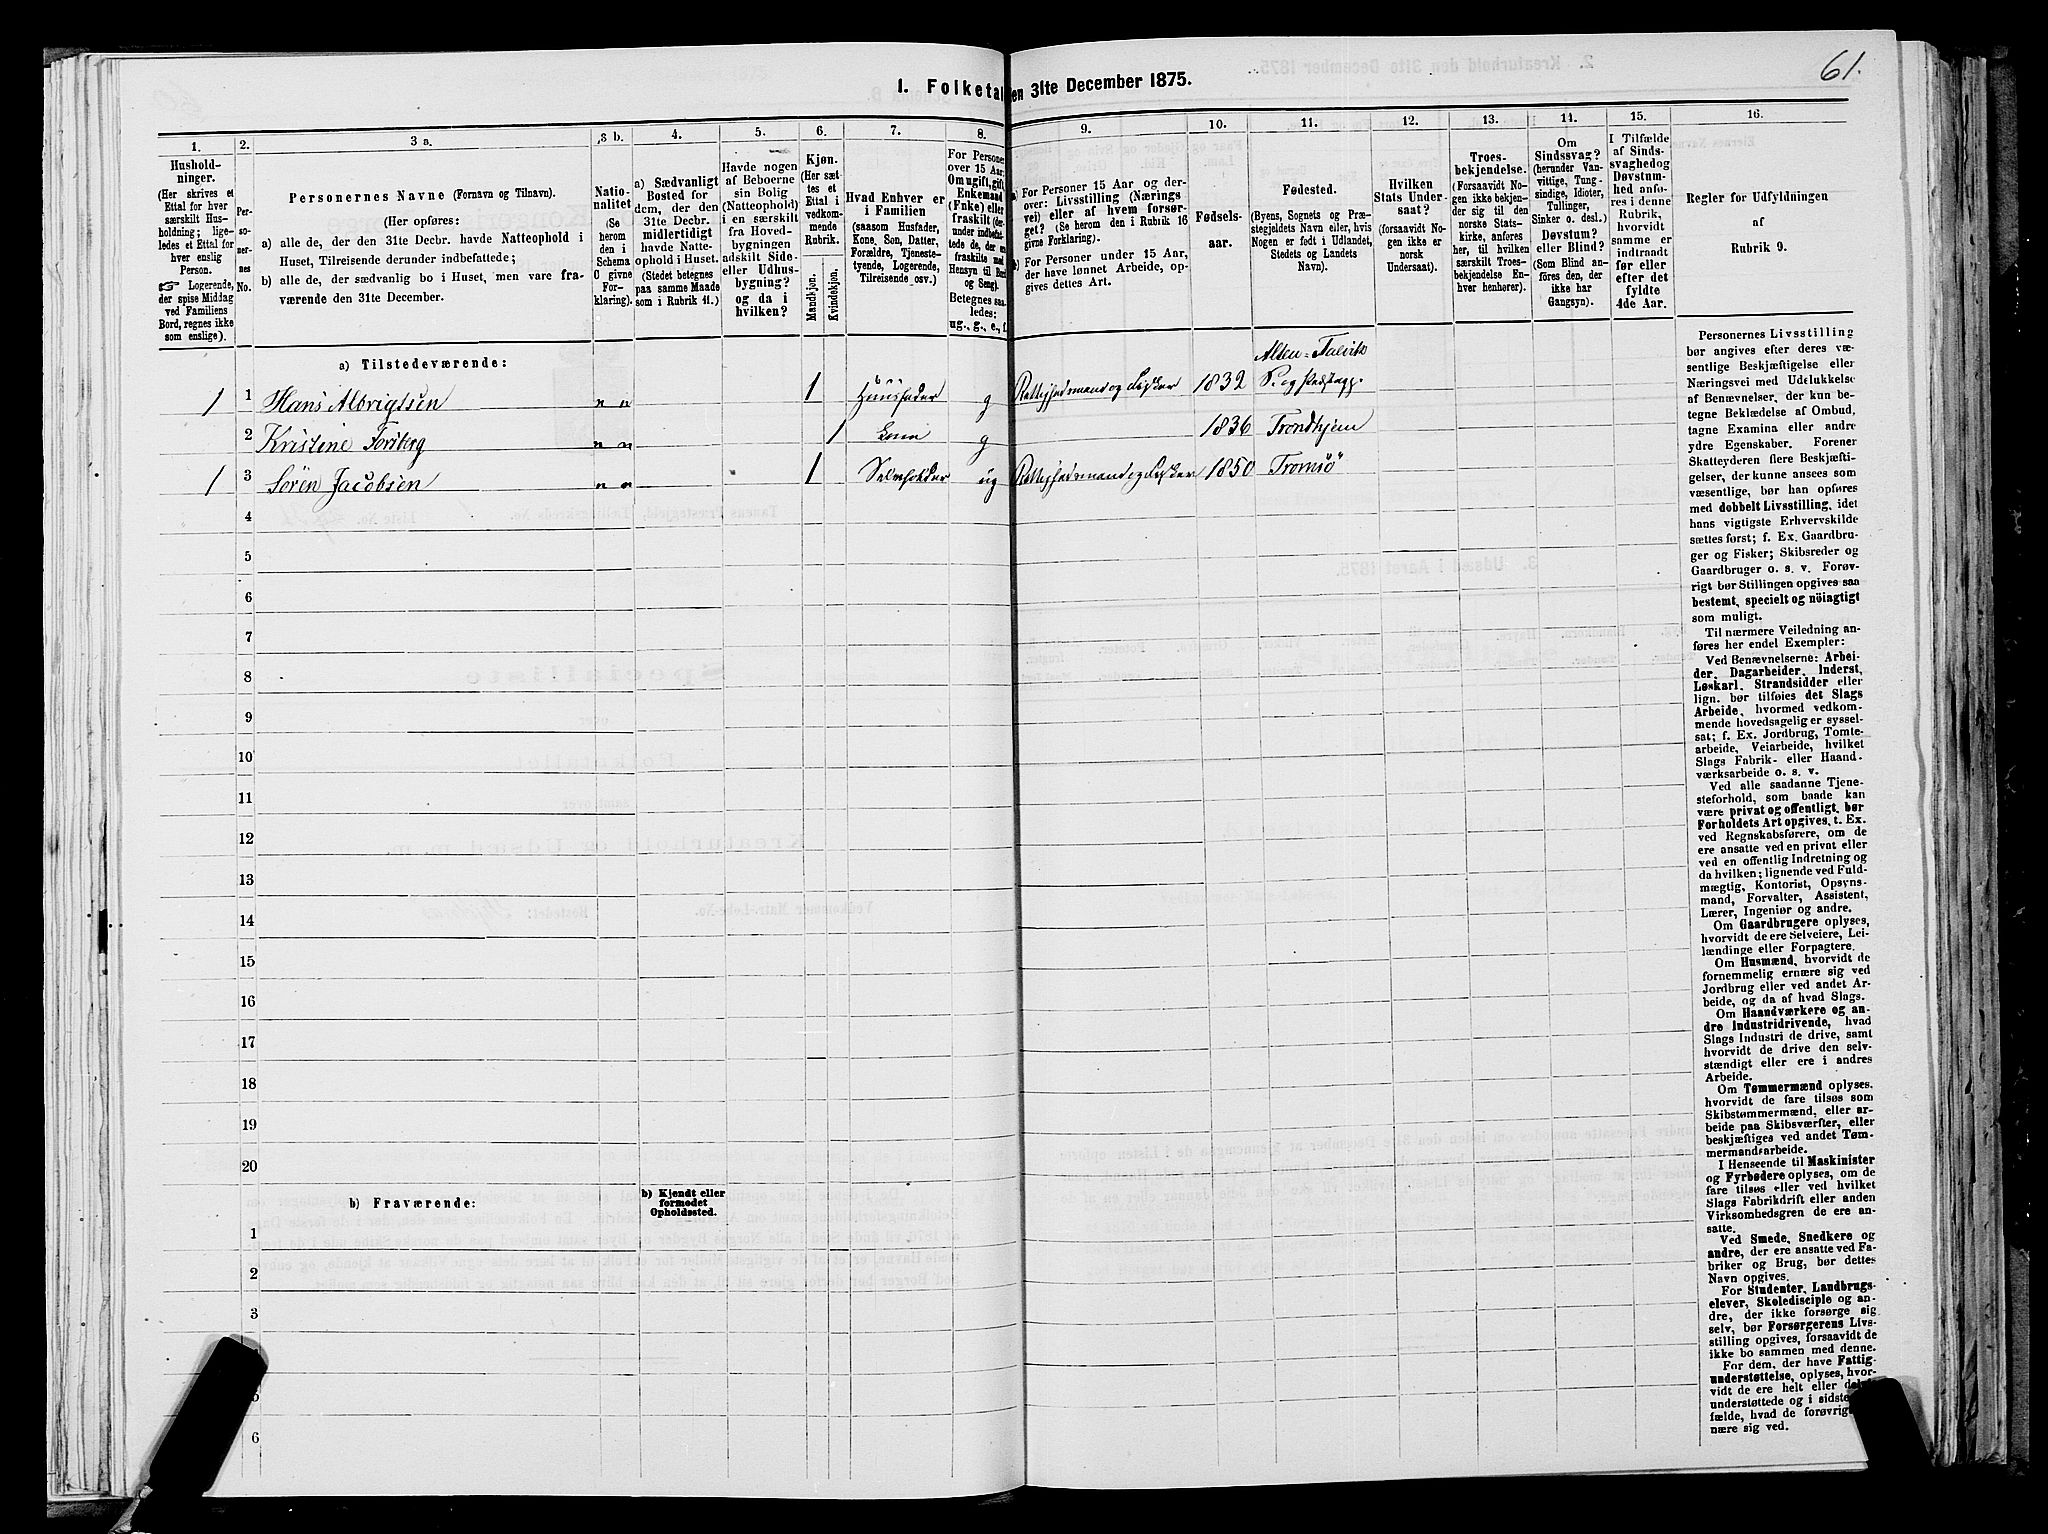 61.
1. Folketal den 31te December 1875.
1. 2. 3 a. 3 b. 4. 5. 6. 7. 8. 9. 10. 11. 12. 13. 14. 15. 16.
Hushold-
ninger.
(Her skrives et
Ettal for hver
særskilt Hus-
holdning; lige-
ledes et Ettal for
hver enslig
Person.
☞ Logerende,
der spise Middag
ved Familiens
Bord, regnes ikke
som enslige).
Per-
so-
ner-
nes
No.
Personernes Navne (Fornavn og Tilnavn).
(Her opføres:
a) alle de, der den 31te Decbr. havde Natteophold i
Huset, Tilreisende derunder indbefattede;
b) alle de, der sædvanlig bo i Huset, men vare fra-
værende den 31te December.
Natio-
nalitet
(Se
herom
den i
Schema
O givne
For-
klaring).
a) Sædvanligt
Bosted for
dem, der den
31te Decbr.
midlertidigt
havde Natte-
ophold i Huset.
(Stedet betegnes
paa samme Maade
som i Rubrik 11.)
Havde nogen
af Beboerne
sin Bolig
(Natteophold)
i en særskilt
fra Hoved-
bygningen
adskilt Side-
eller Udhus-
bygning?
og da i
hvilken?
Kjøn.
(Her sæt-
tes et
Ettal i
vedkom-
mende
Rubrik.
Mandkjøn.
Kvindekjøn.
Hvad Enhver er
i Familien
(saasom Husfader,
Kone, Søn, Datter,
Forældre, Tjeneste-
tyende, Logerende,
Tilreisende osv.)
For Personer
over 15 Aar:
Om ugift, gift,
Enkemand
(Enke) eller
fraskilt
Betegnes saa-
ledes:
ug., g., e., f.
a) For Personer 15 Aar og der-
over: Livsstilling (Nærings-
vei) eller af hvem forsør-
get? (Se herom den i Rubrik 16
givne Forklaring).
b) For Personer under 15 Aar,
der have lønnet Arbeide, op-
gives dettes Art.
Fødsels-
aar.
Fødested.
(Byens, Sognets og Præ-
stegjeldets Navn eller, hvis
Nogen er født i Udlandet,
Stedets og Landets
Navn).
Hvilken
Stats Under-
saat?
(forsaavidt No-
gen ikke er
norsk
Undersaat).
Troes-
bekjendelse.
(Forsaavidt No-
gen ikke bekjen-
der sig til den
norske Stats-
kirke, anføres
her, til hvilken
særskilt Troes-
bekjendelse En-
hver henhører).
Om
Sindssvag?
(herunder Van-
vittige, Tung-
sindige, Idioter,
Tullinger,
Sinker o. desl.)
Døvstum?
eller Blind?
(Som Blind an-
føres den, der
ikke har
Gangsyn).
I Tilfælde
af Sinds-
svaghed og
Døvstum-
hed anfø-
res i denne
Rubrik,
hvorvidt
samme er
indtraadt
før eller
efter det
fyldte
4de Aar.
Regler for Udfyldningen
af
Rubrik 9.
a) Tilstedeværende:
Alten-Talvik
1 1 Hans Albrigtsen n n 1 Huusfader g 1832 S. og Præstegj.
2 Kristine Forsberg n n 1 Kone g 1836 Trondhjem
1 3 Sören Jacobsen n n 1 ug 1850 Tromsö
4
5
6
7
8
9
10
11
12
13
14
15
16
17
18
19
20
b) Fraværende:
b) Kjendt eller
formodet
Opholdssted.
1
2
3
6
Personernes Livsstilling
bør angives efter deres væ-
sentlige Beskjæftigelse eller
Næringsvei med Udelukkelse
af Benævnelser, der kun be-
tegne Beklædelse af Ombud,
tagne Examina eller andre
ydre Egenskaber. Forener
Skatteyderen flere Beskjæfti-
gelser, der kunne ansees som
væsentlige, bør han opføres
med dobbelt Livsstilling, idet
hans vigtigste Erhvervskilde
sættes først; f. Ex. Gaardbru-
ger og Fisker; Skibsreder og
Gaardbruger o. s. v. Forøv-
rigt bør Stillingen opgives saa
bestemt, specielt og nöiagtigt
som muligt.
Til nærmere Veiledning an-
føres her endel Exempler:
Ved Benævnelserne: Arbei-
der, Dagarbeider, Inderst,
Løskarl, Strandsidder eller
lign. bør tilføies det Slags
Arbeide, hvormed vedkom-
mende hovedsagelig er syssel-
sat; f. Ex. Jordbrug, Tomte-
arbeide, Veiarbeide, hvilket
Slags Fabrik- eller Haand-
værksarbeide o. s. v.
Ved alle saadanne Tjene-
steforhold, som baade kan
være privat og offentligt, bør
Forholdets Art opgives, t. Ex.
ved Regnskabsførere, om de
ere ansatte ved en privat eller
ved en offentlig Indretning og
da hvilken; lignende ved Fuld-
mægtig, Kontorist, Opsyns-
mand, Forvalter, Assistent,
Lærer, Ingeniør og andre.
Om Gaardbrugere oplyses,
hvorvidt de ere Selveiere, Lei-
lændinge eller Forpagtere.
Om Husmænd, hvorvidt de
fornemmelig ernære sig ved
Jordbrug eller ved andet Ar-
beide, og da af hvad Slags.
Om Haandværkere og an-
dre Industridrivende, hvad
Slags Industri de drive, samt
hvorvidt de drive den selv-
stændigt eller ere i andres
Arbeide.
Om Tømmermænd oplyses,
hvorvidt de fare tilsøs som
Skibstømmermænd, eller ar-
beide paa Skibsværfter, eller
beskjæftiges ved andet Tøm-
mermandsarbeide.
I Henseende til Maskinister
og Fyrbødere oplyses, om de
fare tilsøs eller ved hvilket
Slags Fabrikdrift eller anden
Virksomhedsgren de ere an-
satte.
Ved Smede, Snedkere og
andre, der ere ansatte ved Fa-
briker og Brug, bør dettes
Navn opgives.
For Studenter, Landbrugs-
elever, Skoledisciple og an-
dre, der ikke forsørge sig
selv, bør Forsørgerens Livs-
stilling opgives, forsaavidt de
ikke bo sammen med denne.
For dem, der have Fattig-
understøttelse, oplyses, hvor-
vidt de ere helt eller
understøttede og i sidste
fælde, hvad de forøvrigt
nære sig ved.